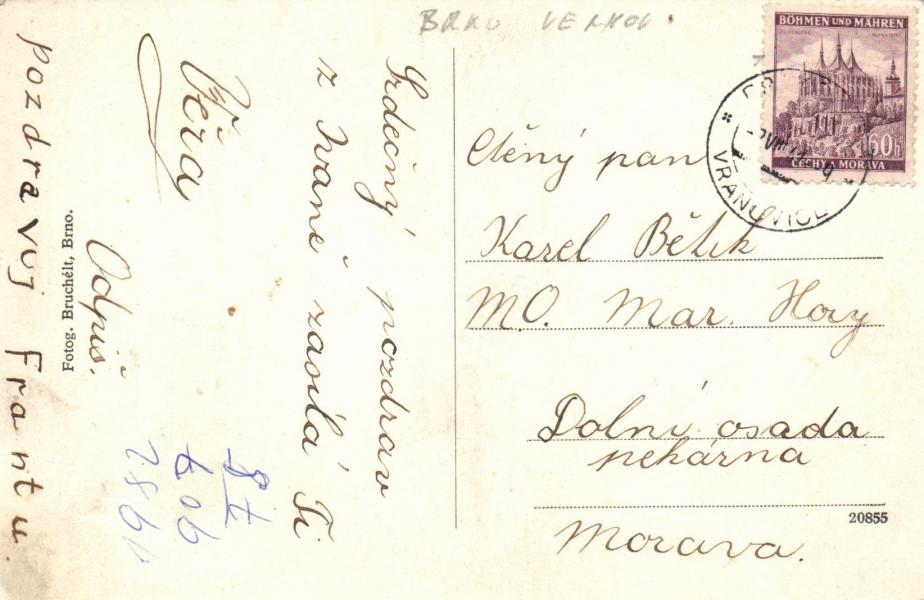 BRNO
BÖHMEN UND MÄHREN
60h
ČECHY A MORAVA
VRANOVICE
Srdečný pozdrav
z Ivaně zasílá Ti
Věra
Odpiš.
pozdravuj Frantu.
Fotog. Bruchélt, Brno.
Ctěný pan
Karel Bětík
M.O. Mar. Hory
Dolní osada
pekárna
Morava.
20855